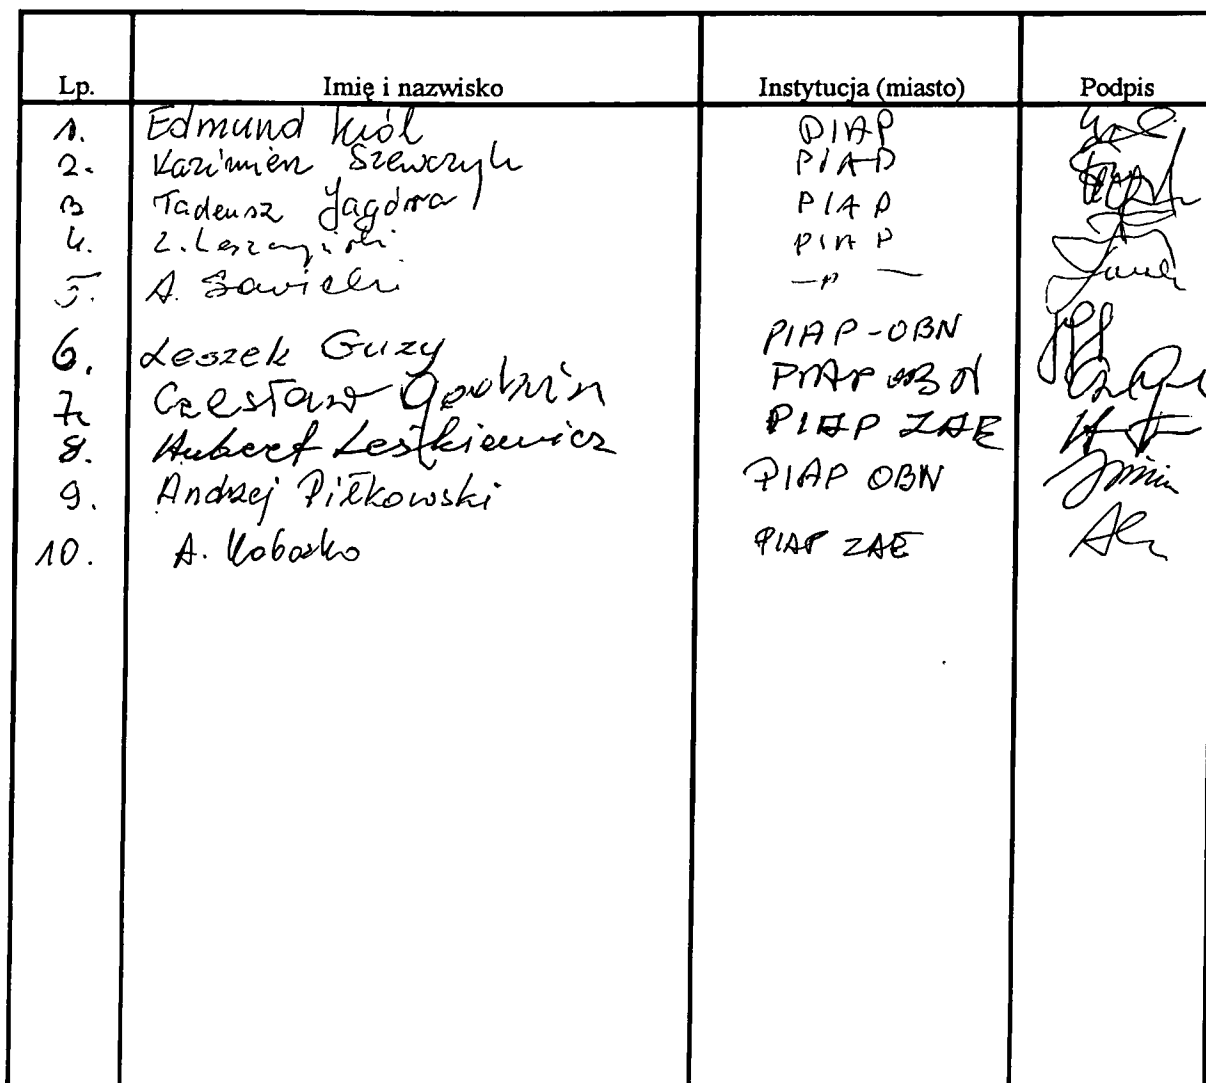 Lp. Imię i nazwisko Instytucja (miasto) Podpis
1. Edmund Król PIAP
2. Kazimierz Szewczyk PIAP
3 Tadeusz Jagódka PIAP
4. Z. Leszczyński PIAP
5. A. Sawicki —"—
6. Leszek Guzy PIAP-OBN
7. Czesław PIAP OBN
8. Hubert Leśkiewicz PIAP ZAE
9. Andrzej Piłkowski PIAP OBN
10. A. Kobosko PIAP ZAE